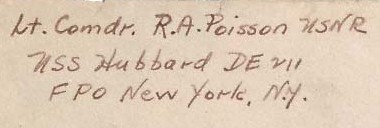 Lt. Comdr. R.A. Poisson USNR
USS Hubbard DE 211
FPO New York, N.Y.